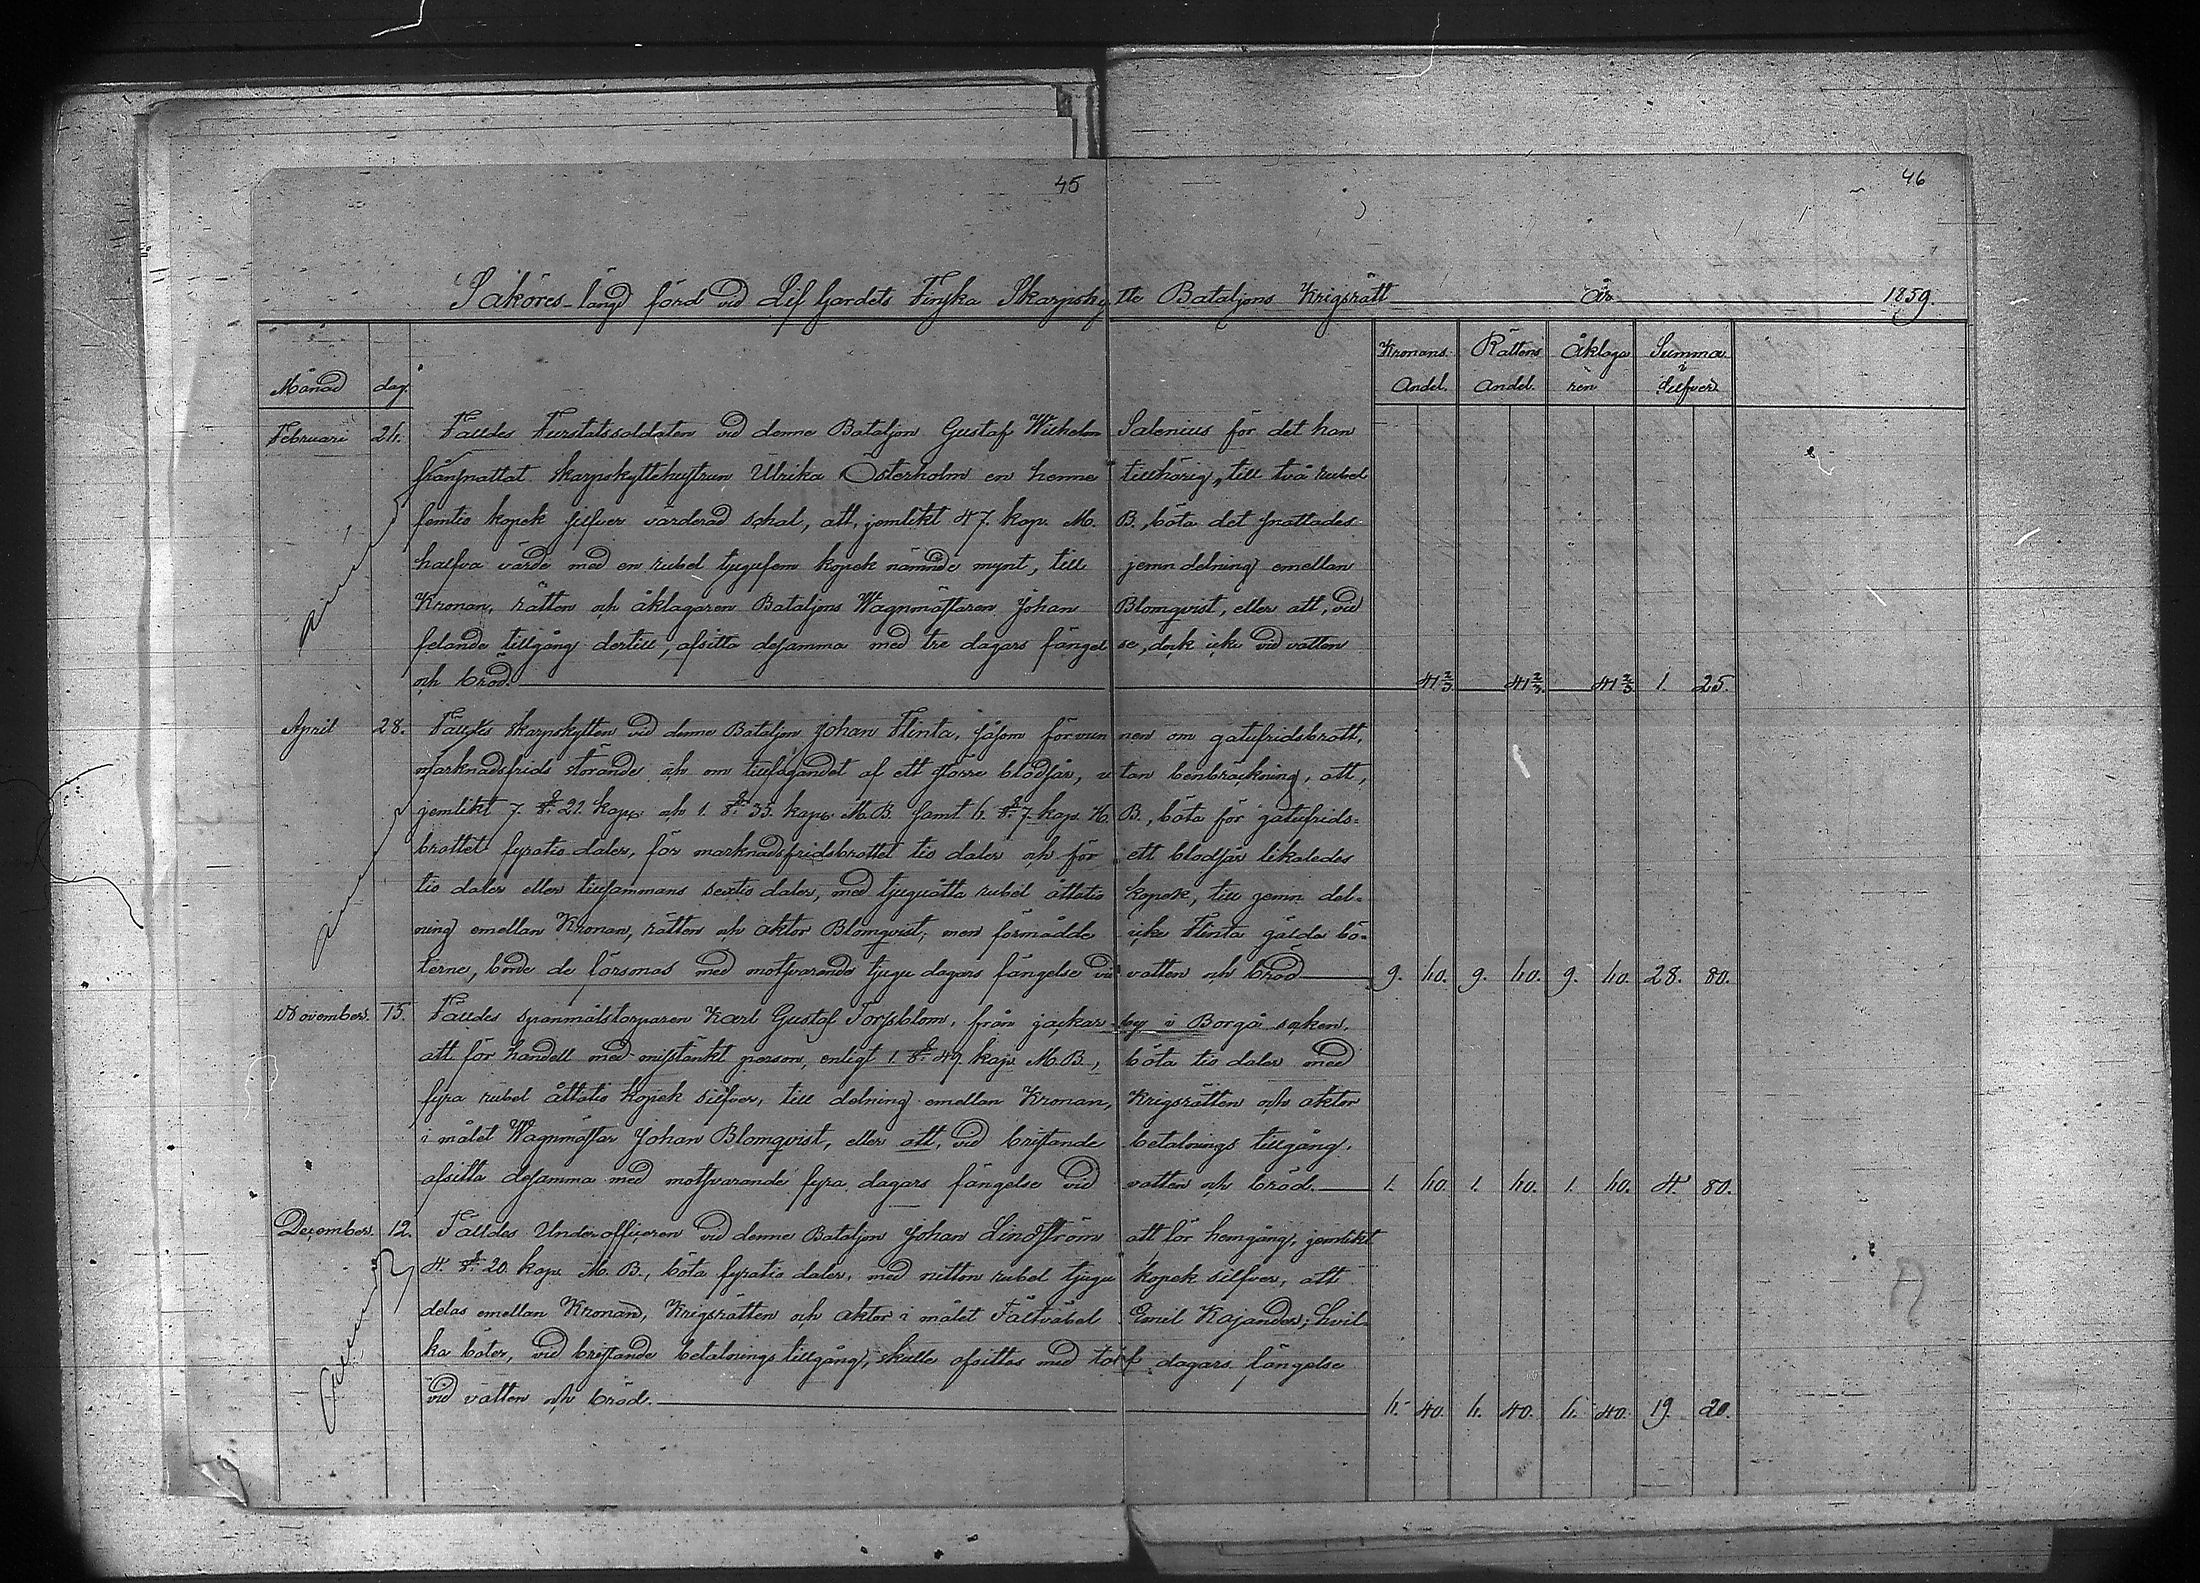 45
46
Saköres-längd förd vid Lif Gardets Finska Skarpskytte Bataljons Krigsrätt År 1859.
Månad dag. Kronans Andel. Rättens Andel. Åklagaren Summa i Silfver
Februari 24. Fälldes Furstatssoldaten vid denne Bataljon Gustaf Wilhelm Salenius för det han
frånsnattat skarpskyttehustrun Ulrika Österholm en henne tillhörig, till två rubel
femtio kopek silfver värderad schal, att, jemlikt 47. kap. M. B., böta det snattades
halfva värde med en rubel tjugufem kopek nämnde mynt, till jemn delning emellan
Kronan, rätten och åklagaren Bataljons Wagnmästaren Johan Blomqvist, eller att, vid
felande tillgång dertill, afsitta desamma med tre dagars fängelse, dock icke vid vatten
och bröd. 41 2/3 41 2/3. 41 2/3 1. 25.
April 28. Fälldes skarpskytten vid denne Bataljon Johan Flinta, såsom förvunnen om gatufridsbrott,
marknadsfrids störande och om tillfogandet af ett större blodsår, utan benbräckning, att,
jemlikt 7. §. 21. kap. och 1. §. 35. kap. M. B. samt 6. § 7. kap. M. B., böta för gatufrids-
brottet fyratio daler, för marknadsfridsbrottet tio daler och för ett blodsår likaledes
tio daler eller tillsammans sextio daler, med tjuguåtta rubel åttatio kopek, till jemn del-
ning emellan Kronan, rätten och aktor Blomqvist; men förmådde icke Flinta gälda bö-
terne, borde de försonas med motsvarande tjugu dagars fängelse vid vatten och bröd 9. 60. 9. 60. 9. 60. 28. 80.
November. 15. Fälldes spanmålstorparen Karl Gustaf Torpsblom, från Jackarby i Borgå socken,
att för handell med misstänkt person, enligt 1. §. 49. kap. M. B., böta tio daler med
fyra rubel åttatio kopek silfver, till delning emellan Kronan, Krigsrätten och aktor
i målet Wagnmästar Johan Blomqvist, eller att, vid bristande betalnings tillgång,
afsitta desamma med motsvarande fyra dagars fängelse vid vatten och bröd. 1. 60. 1. 60. 1. 60. 4. 80.
December. 12. Fälldes Underofficeren vid denne Bataljon Johan Lindström att för hemgång, jemlikt
4. §. 20. kap. M. B., böta fyratio daler, med nitton rubel tjugu kopek silfver, att
delas emellan Kronan, Krigsrätten och aktor i målet Fältväbel Emil Kajander; hvil-
ka böter, vid bristande betalnings tillgång, skulle afsittas med tolf dagars fängelse
vid vatten och bröd. 6. 40. 6. 40. 6. 40. 19. 20.